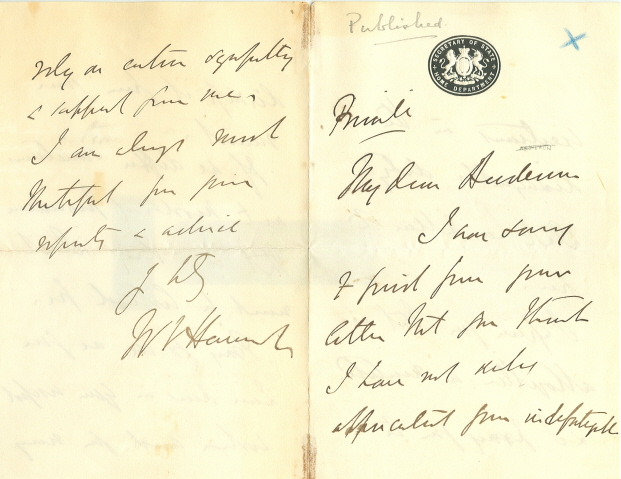 Published.
SECRETARY OF STATE
HOME DEPARTMENT
Private
My dear Henderson
I am sorry
to find from your
letter that you think
I have not duly
appreciated your indefatigable
rely on entire sympathy
& support from me.
I am always most
thankful for your
reports & advice
W V Harcourt